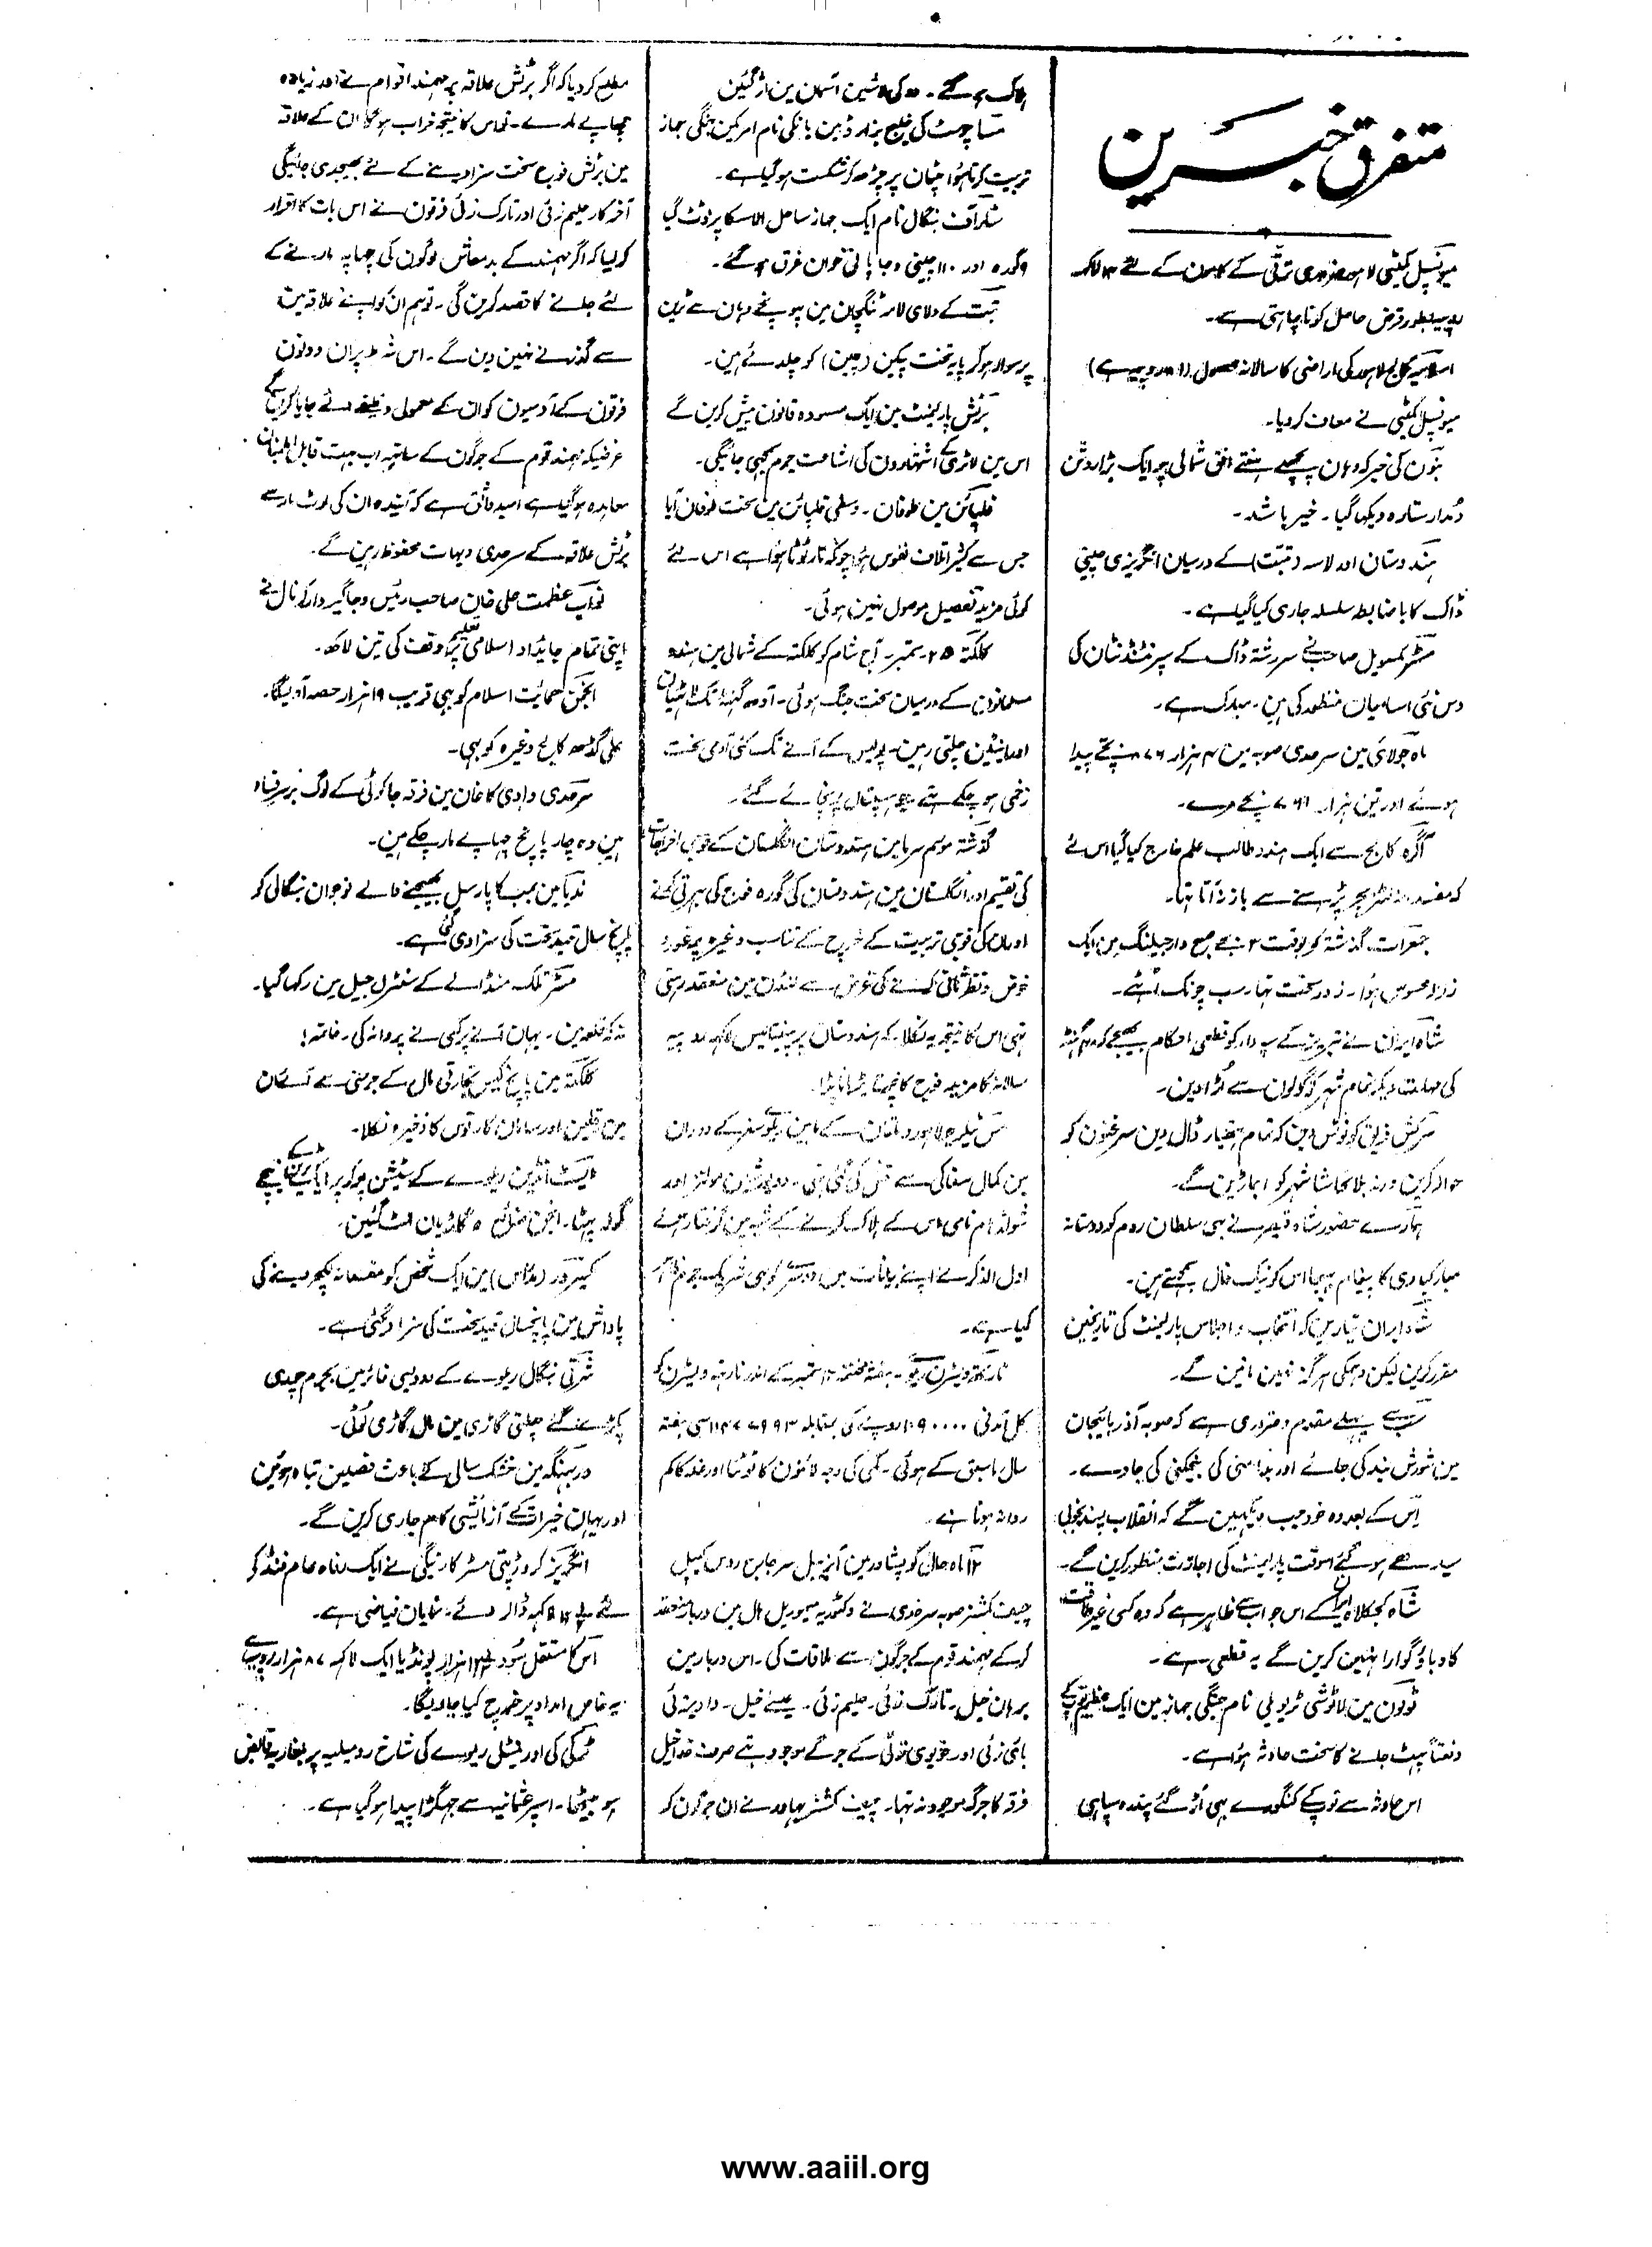 متفرق خبرین
میونسپل کمیٹی لاہور ضروری ترقی کے کامون کے لئے ۱۳ لاکہ
روپیہ بطور قرض حاصل کرنا چاہتی ہے۔
اسلامیہ کالج لاہور کی اراضی کا سالانہ محصول
میونسپل کمیٹی نے معاف کردیا۔
بنّون کی خبر کہ وہان پچھلے ہفتے افق شمالی پر ایک بڑا روشن
دُمدار ستارہ دیکھا گیا۔ خیر باشد۔
ہندوستان اور لاسہ (تبت) کے درمیان انگریزی چینی
ڈاک کا باضابطہ سلسلہ جاری کیا گیا ہے۔
مسٹر صاحب نے سررشتہ ڈاک کے سپرنٹنڈنٹان کی
دس نئی اسامیان منظور کی ہین۔ مبارک ہے۔
ماہ جولائی مین سرحدی صوبہ مین ۴ ہزار ۸۷۶ بچے پیدا
ہوئے اور تین ہزار ۷۶۱ بچے مرے۔
آگرہ کالج سے ایک ہندو طالب علم خارج کیا گیا اس لئے
کہ مفسدانہ لٹریچر پڑہنے سے باز نہ آتا تہا۔
جمعرات گذشتہ کو بوقت ۲ بجے صبح دارجیلنگ مین ایک
زلزلہ محسوس ہوا۔ زور سخت تہا۔ سب چونک اُٹھے۔
شاہ ایران نے تبریز کے سپہ دار کو قطعی احکام بھیجے کہ ۴۸ گھنٹہ
کی مہلت دیکر تمام شہر کو گولون سے اُڑادین۔
سرکش فریق کو نوٹس دین کہ تمام ہتھیار ڈال دین سرغنون کو
حوالہ کرین ورنہ بلاتحاشا شہر کو اجاڑ دین گے۔
ہمارے حضور شاہ قیصر نے بہی سلطان روم کو دوستانہ
مبارکبادی کا پیغام بہیجا اس کو نیک فال سمجھتے ہین۔
شاہ ایران تیار ہین کہ انتخاب و اجلاس پارلیمنٹ کی تاریخین
مقرر کرین لیکن دہمکی ہرگز نہین مانین گے۔
سب سے پہلے مقدم و ضروری ہے کہ صوبہ آذربائیجان
مین شورش بند کی جائے اور بدامنی کی بیخکنی کی جاوے۔
اس کے بعد وہ خود جب دیکہین گے کہ انقلاب پسند بخوبی
سیدھے ہوگئے اسوقت پارلیمنٹ کی اجازت منظور کرین گے۔
شاہ کجکلاہ ایران کے اس جواب سے ظاہر ہے کہ وہ کسی غیر طاقت
کا دباؤ گوارا نہین کرین گے یہ قطعی ہے۔
ٹولون مین لاٹوشی ٹریویلی نام جنگی جہاز مین ایک عظیم توپ کے
دفعتاً پہٹ جانے کا سخت حادثہ ہوا ہے۔
اس حادثہ سے توپ کے کنگورے بہی اُڑ گئے پندرہ سپاہی
ہلاک ہوگئے۔ کی لاشین آسمان مین اڑ گئین
مساچوسٹ کی خلیج بزارڈ مین یانکی نام امریکن جنگی جہاز
تربیت کرتا ہوا چٹان پر چڑھ کر شکست ہوگیا ہے۔
سٹار آف بنگال نام ایک جہاز ساحل الاسکا پر ٹوٹ گیا
۹ گورہ اور ۱۱۰ چینی و جاپانی نوجوان غرق ہوگئے۔
تبت کے دلائی لامہ ٹنگچان مین پہونچے وہان سے ٹرین
پر سوار ہوکر پایہ تخت پیکن (چین) کو چلدئے ہین۔
برٹش پارلیمنٹ مین ایک مسودہ قانون پیش کرین گے
اس مین لاٹری کے اشتہارون کی اشاعت جرم سمجھی جائیگی۔
فلپائن مین طوفان۔ وسطی فلپائن مین سخت طوفان آیا
جس سے کثیر اتلاف نفوس ہوا چونکہ تار ٹوٹا ہوا ہے اس لئے
کوئی مزید تفصیل موصول نہین ہوئی۔
کلکتہ ۲۵ ستمبر۔ آج شام کو کلکتہ کے شمالی مین ہندو
مسلمانون کے درمیان سخت جنگ ہوئی۔ آدھ گھنٹہ تک لاٹھیان
اور اینٹین چلتی رہین۔ پولیس کے آنے تک کئی آدمی سخت
زخمی ہوچکے تہے جو ہسپتال پہنچائے گئے۔
گذشتہ موسم سرما مین ہندوستان و انگلستان کے فوجی اخراجات
کی تقسیم اور انگلستان مین ہندوستان کی گورہ فوج کی بہرتی کرنے
اور ان کی فوجی تربیت کے خرچ کے تناسب وغیرہ پر غور و
خوض و نظرثانی کرنے کی غرض سے لنڈن مین منعقد رہتی
تہی اس کا نتیجہ یہ نکلا کہ ہندوستان پر پینتالیس لاکہہ روپیہ
سالانہ کا مزید فوج کا خرچہ بڑہانا پڑا۔
مس لاہور و ملتان کے مابین ریلوے سفر کے دوران
مین کمال سفاکی سے قتل کی گئی تہی۔ دو یورپین مولنز اور
نام نامی اس کے ہلاک کرنے کے شبہ مین گرفتار ہوئے
اول الذکر نے اپنے بیانات مین دوسرے کو بہی شریک جرم
کیا ہے۔
نارتھ ویسٹرن ریلوے۔ ہفتہ مختتمہ ستمبر کے اندر نارتہہ ویسٹرن کو
کل آمدنی روپے کی بمقابلہ اسی ہفتہ
سال ماسبق کے ہوئی۔ کمی کی وجہ لائنون کا ٹوٹنا اور غلہ کا کم
روانہ ہونا ہے۔
۱۲ ماہ حال کو پشاور مین آنریبل سر جارج روس کیپل
چیف کمشنر صوبہ سرحدی نے وکٹوریہ میموریل ہال مین دربار منعقد
کرکے مہمند قوم کے جرگون سے ملاقات کی۔ اس دربار مین
برہان خیل۔ تارک زئی۔ حلیم زئی۔ عیسے خیل۔ داویزئی
بائی زئی اور خویزئی قوم کے جرگے موجود تہے صرف خداخیل
فرقہ کا جرگہ موجود نہ تہا۔ چیف کمشنر بہادر نے ان جرگون کو
مطلع کردیا کہ اگر برٹش علاقہ پر مہمند اقوام نے اور زیادہ
چھاپے مارے۔ تو اس کا نتیجہ خراب ہوگا ان کے علاقہ
مین برٹش فوج سخت سزا دینے کے لئے بھیجدی جائیگی
آخرکار حلیم زئی اور تارک زئی فرقون نے اس بات کا اقرار
کرلیا کہ اگر مہمند کے بدمعاش لوگون کی چھاپہ مارنے کے
لئے جانے کا قصد کرین گی۔ تو ہم ان کو اپنے علاقہ مین
سے گذرنے نہین دین گے۔ اس شرط پر ان دونون
فرقون کے آدمیون کو ان کے معمولی وظیفے دئے جایا کرینگے
غرضیکہ مہمند قوم کے جرگون کے ساتہہ اب بہت قابل اطمینان
معاہدہ ہوگیا ہے امید واثق ہے کہ آئیندہ ان کی لوٹ مار سے
برٹش علاقہ کے سرحدی دیہات محفوظ رہین گے۔
نواب عظمت علی خان صاحب رئیس و جاگیردار کرنال نے
اپنی تمام جائداد اسلامی تعلیم پر وقف کی تین لاکھ۔
انجمن حمایت اسلام کو بہی قریب ۱۹ ہزار حصہ آدیگا۔
علی گڈھ کالج وغیرہ کو بہی۔
سرحدی وادی کاغان مین فرقہ جاکوئی کے لوگ برسر فساد
ہین وہ چار پانچ چہاپے مار چکے ہین۔
ندیا مین بمب کا پارسل بھیجنے والے نوجوان بنگالی کو
پانچ سال قید سخت کی سزا دی گئی ہے۔
مسٹر تلک منڈالے کے سنٹرل جیل مین رکھا گیا۔
نہ کہ قلعہ مین۔ یہان آنے پر کسی نے پروا نہ کی۔ خاتمہ!
کلکتہ مین پانچ کیس تجارتی مال کے جرمنی سے آئے ان
مین رفلین اور سامان کارتوس کا ذخیرہ نکلا۔
ایسٹ انڈین ریلوے کے سٹیشن پر ایک ٹرین کے نیچے
گولہ پہٹا۔ انجن ۵ گاڑیان الٹ گئین۔
(مدراس) مین ایک شخص کو مفسدانہ لکچر دینے کی
پاداش مین پانچسال قید سخت کی سزا دی گئی ہے۔
شرقی بنگال ریلوے کے دو دیسی فائرمین بجرم چوری
پکڑے گئے چلتی گاڑی مین مال گاڑی لوٹی۔
دربہنگہ مین خشک سالی کے باعث فصلین تباہ ہوئین
اور یہان خیرات کے آزمائیشی کام جاری کرین گے۔
انگریز کروڑپتی مسٹر کارنیگی نے ایک رفاہ عام فنڈ کو
لاکہہ ڈالر دئے۔ نمایان فیاضی ہے۔
اس کا مستقل سُود ہزار پونڈ یا ایک لاکہہ ۸۷ ہزار روپیہ
یہ خاص امداد پر خرچ کیا جاویگا۔
ٹرکی کی اورینٹل ریلوے کی شاخ رومیلیہ پر بلغاریہ قابض
ہو بیٹھا۔ اسپر عثمانیہ سے جہگڑا پیدا ہوگیا ہے۔
www.aaiil.org